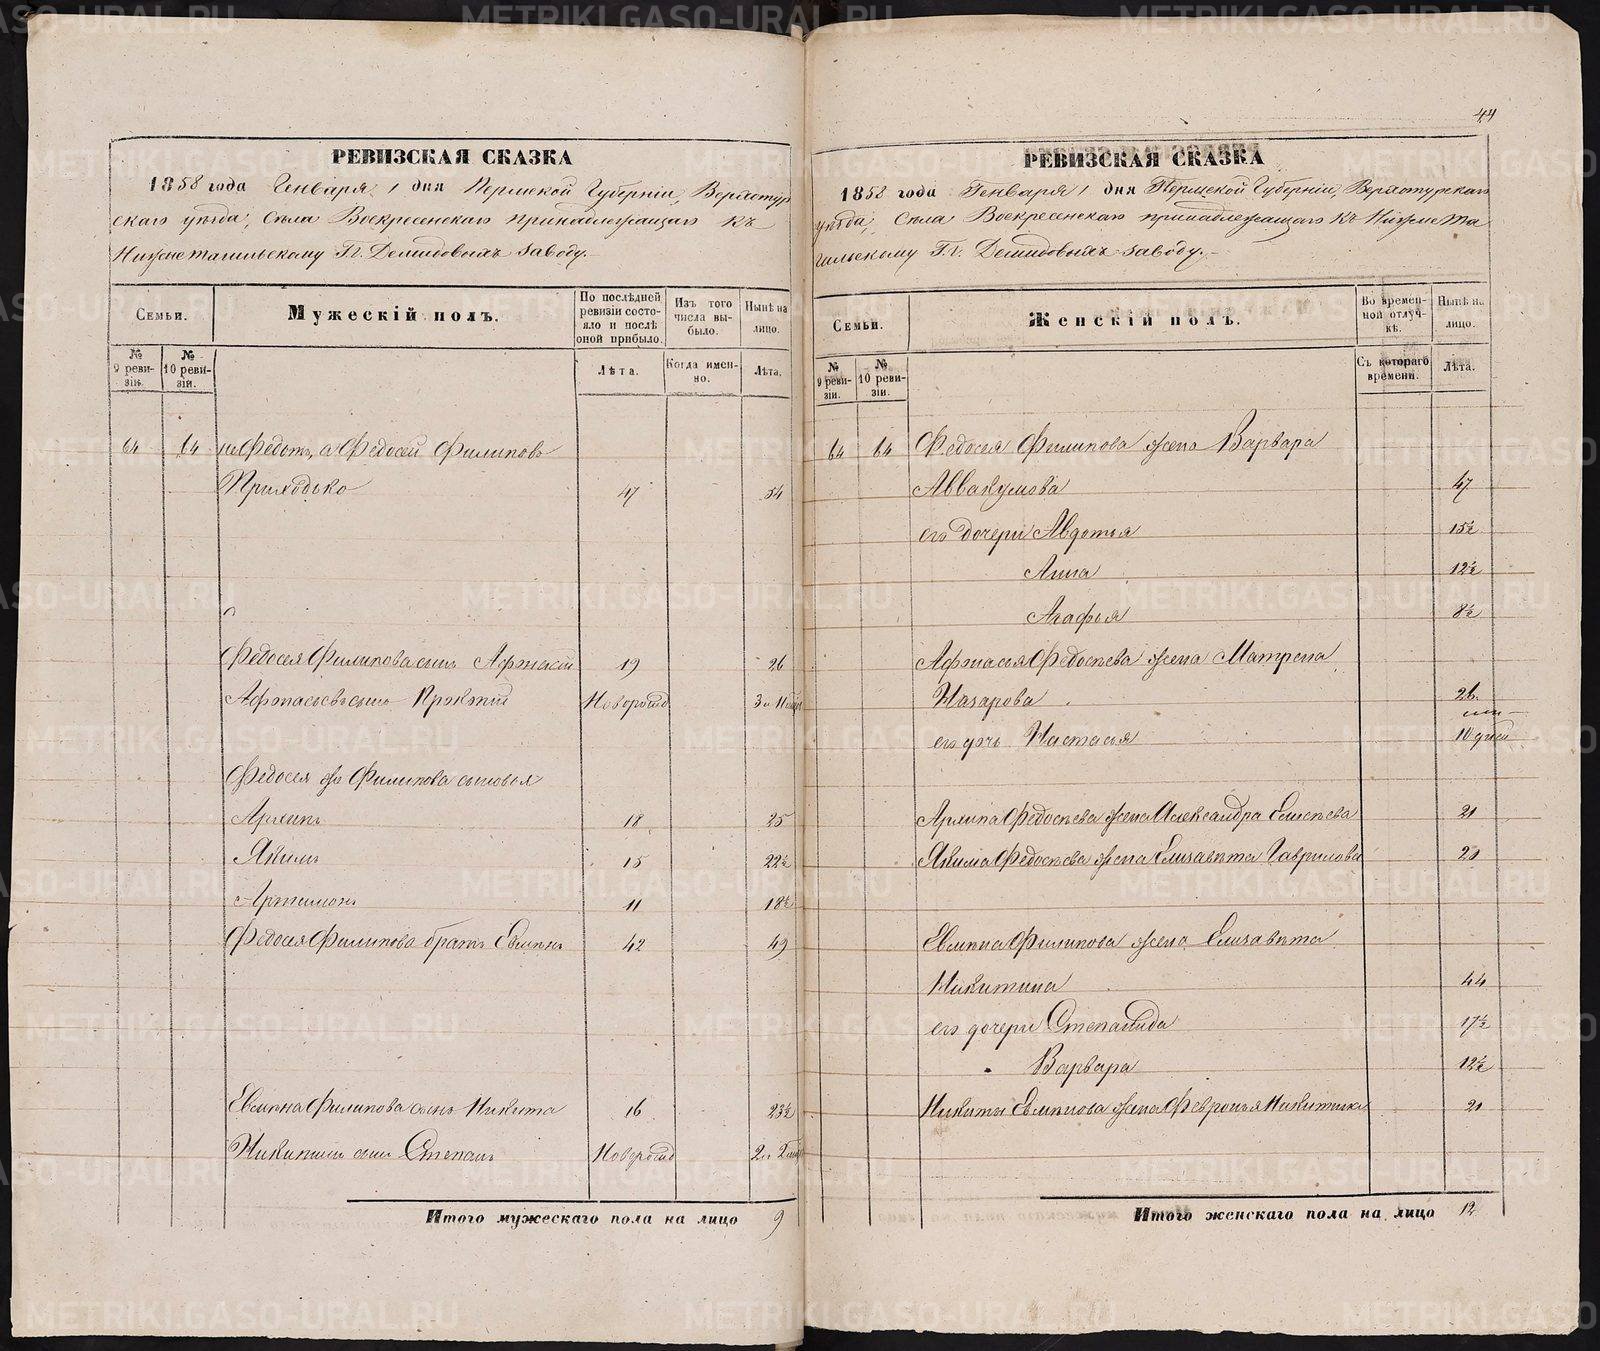 44
РЕВИЗСКАЯ СКАЗКА
1858 года Генваря 1 дня Пермской Губерніи, Верхотур
скаго уѣзда, Села Воскресенскаго принадлежащаго къ
Нижнетагильскому Гг. Демидовыхъ заводу.
Семьи.
Мужескій полъ.
По послѣдней ревизіи состояло и послѣ оной прибыло.
Изъ того числа выбыло.
Нынѣ на лицо.
№ 9 ревизіи.
№ 10 ревизіи.
Лѣта.
Когда именно.
Лѣта.
64 64 не Федотъ, а Федосей Филиповъ
Приходько 47 54
Федосея Филипова сынъ Афанасій 19 26
Афанасьевъ сынъ Новорожд 3
Федосея же Филипова сыновья
Архипъ 18 25
Якимъ 15 22½
Артамонъ 11 18½
Федосея Филипова братъ Евменъ 42 49
Евмена Филипова сынъ Никита 16 23½
Никитинъ сынъ Степанъ Новорожд 2
Итого мужескаго пола на лицо 9
РЕВИЗСКАЯ СКАЗКА
1858 года Генваря 1 дня Пермской Губерніи, Верхотурскаго
уѣзда, Села Воскресенскаго принадлежащаго къ Нижнета
гильскому Гг. Демидовыхъ заводу.
Семьи.
Женскій полъ.
Во временной отлучкѣ.
Нынѣ на лицо.
№ 9 ревизіи.
№ 10 ревизіи.
Съ котораго времени.
Лѣта.
64 64 Федосея Филипова жена Варвара
Аввакумова 47
его дочери Авдотья 15½
Анна 12½
Агафья 8½
Афанасья Федосѣева жена Матрена
Назарова 26
его дочь Настасья 10 дней
Архипа Федосѣева жена Александра Елисѣева 21
Якима Федосѣева жена Елизавета Гаврилова 21
Евмена Филипова жена Елизавета
Никитина 44
его дочери Степанида 17½
Варвара 12½
Никиты Евменова жена Февронья Никитина 21
Итого женскаго пола на лицо 12
METRIKI.GASO-URAL.RU